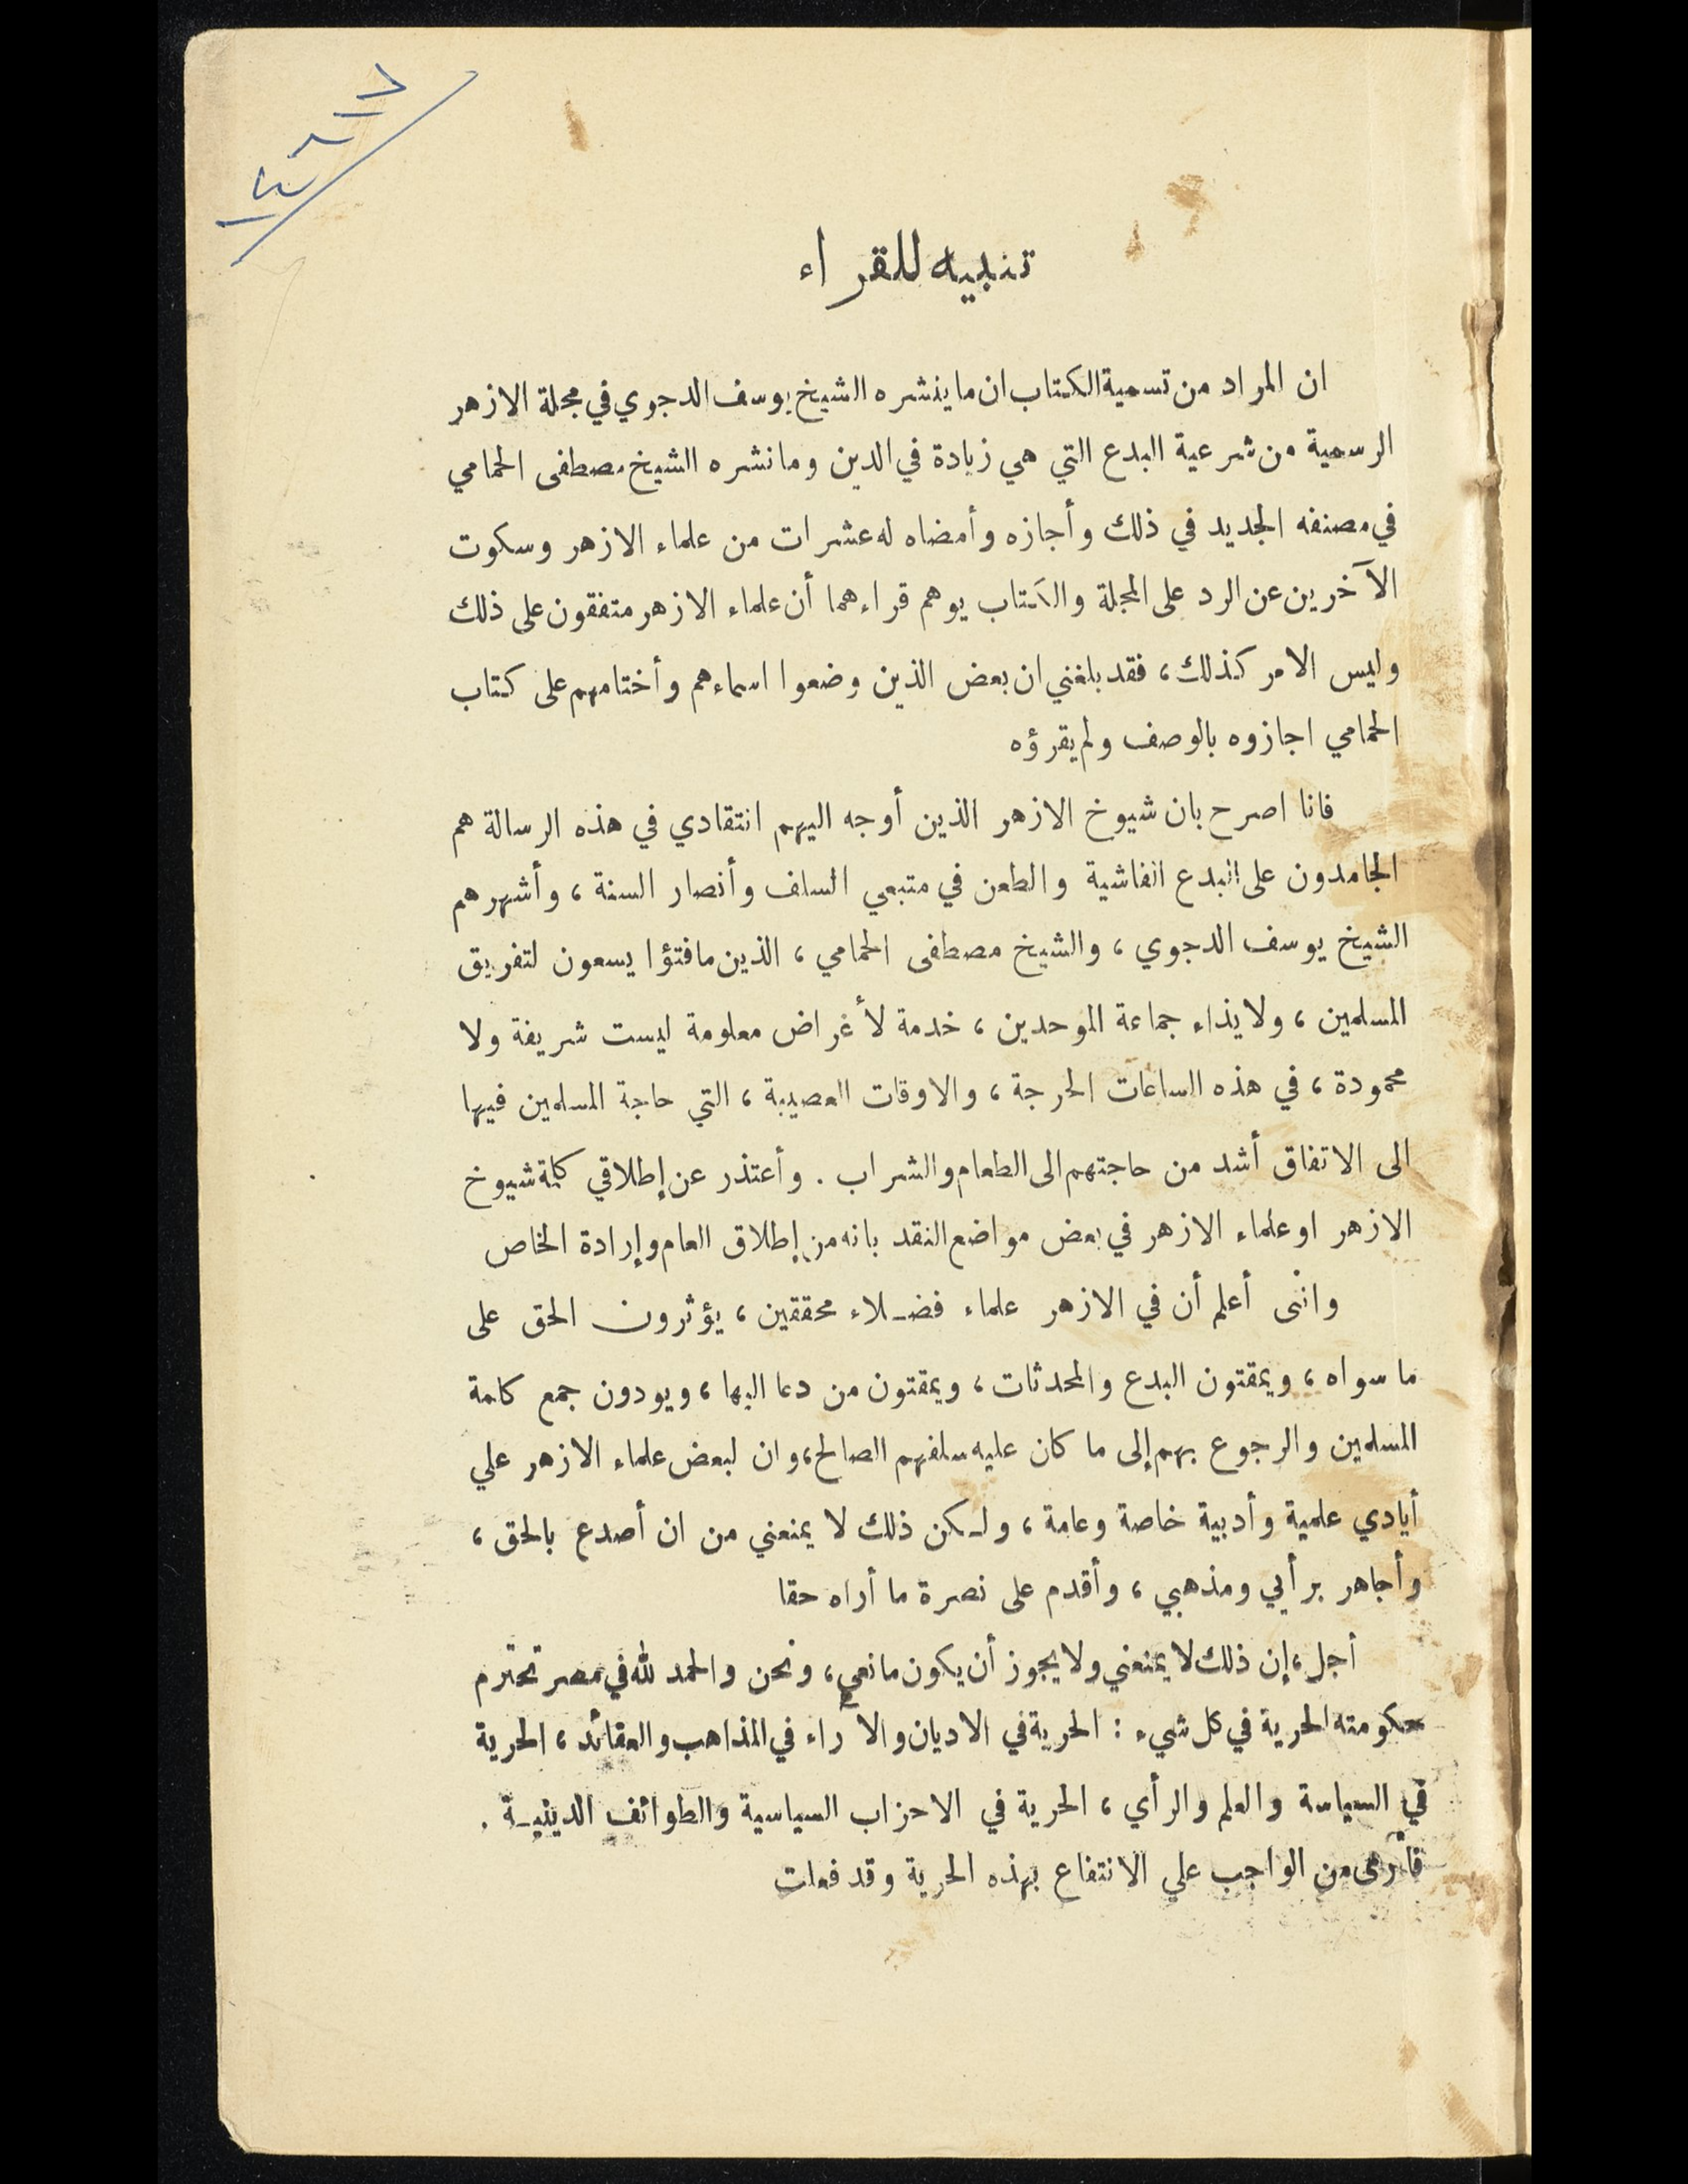 تنبيه للقراء
ان المراد من تسمية الكتاب ان ما ينشره الشيخ يوسف الدجوي في مجلة الازهر
الرسمية من شرعية البدع التي هي زيادة في الدين وما نشره الشيخ مصطفى الحمامي
في مصنفه الجديد في ذلك وأجازه وأمضاه له عشرات من علماء الازهر وسكوت
الآخرين عن الرد على المجلة والكتاب يوهم قراءهما أن علماء الازهر متفقون على ذلك
وليس الامر كذلك، فقد بلغني ان بعض الذين وضعوا اسماءهم وأختامهم على كتاب
الحمامي اجازوه بالوصف ولم يقرؤه
فانا اصرح بان شيوخ الازهر الذين أوجه اليهم انتقادي في هذه الرسالة هم
الجامدون على البدع الفاشية والطعن في متبعي السلف وأنصار السنة، وأشهرهم
الشيخ يوسف الدجوي، والشيخ مصطفى الحمامي، الذين ما فتؤا يسعون لتفريق
المسلمين، ولايذاء جماعة الموحدين، خدمة لأغراض معلومة ليست شريفة ولا
محمودة، في هذه الساعات الحرجة، والاوقات العصيبة، التي حاجة المسلمين فيها
الى الاتفاق أشد من حاجتهم الى الطعام والشراب. وأعتذر عن إطلاقي كلمة شيوخ
الازهر او علماء الازهر في بعض مواضع النقد بانه من إطلاق العام وإرادة الخاص
وانى أعلم أن في الازهر علماء فضلاء محققين، يؤثرون الحق على
ما سواه، ويمقتون البدع والمحدثات، ويمقتون من دعا اليها، ويودون جمع كلمة
المسلمين والرجوع بهم إلى ما كان عليه سلفهم الصالح، وان لبعض علماء الازهر علي
أيادي علمية وأدبية خاصة وعامة، ولكن ذلك لا يمنعني من ان أصدع بالحق،
وأجاهر برأيي ومذهبي، وأقدم على نصرة ما أراه حقا
أجل، إن ذلك لا يمنعني ولا يجوز أن يكون مانعي، ونحن والحمد لله في مصر تحترم
حكومته الحرية في كل شيء : الحرية في الاديان والآراء في المذاهب والعقائد، الحرية
في السياسة والعلم والرأي، الحرية في الاحزاب السياسية والطوائف الدينية.
فأرى من الواجب علي الانتفاع بهذه الحرية وقد فعلت